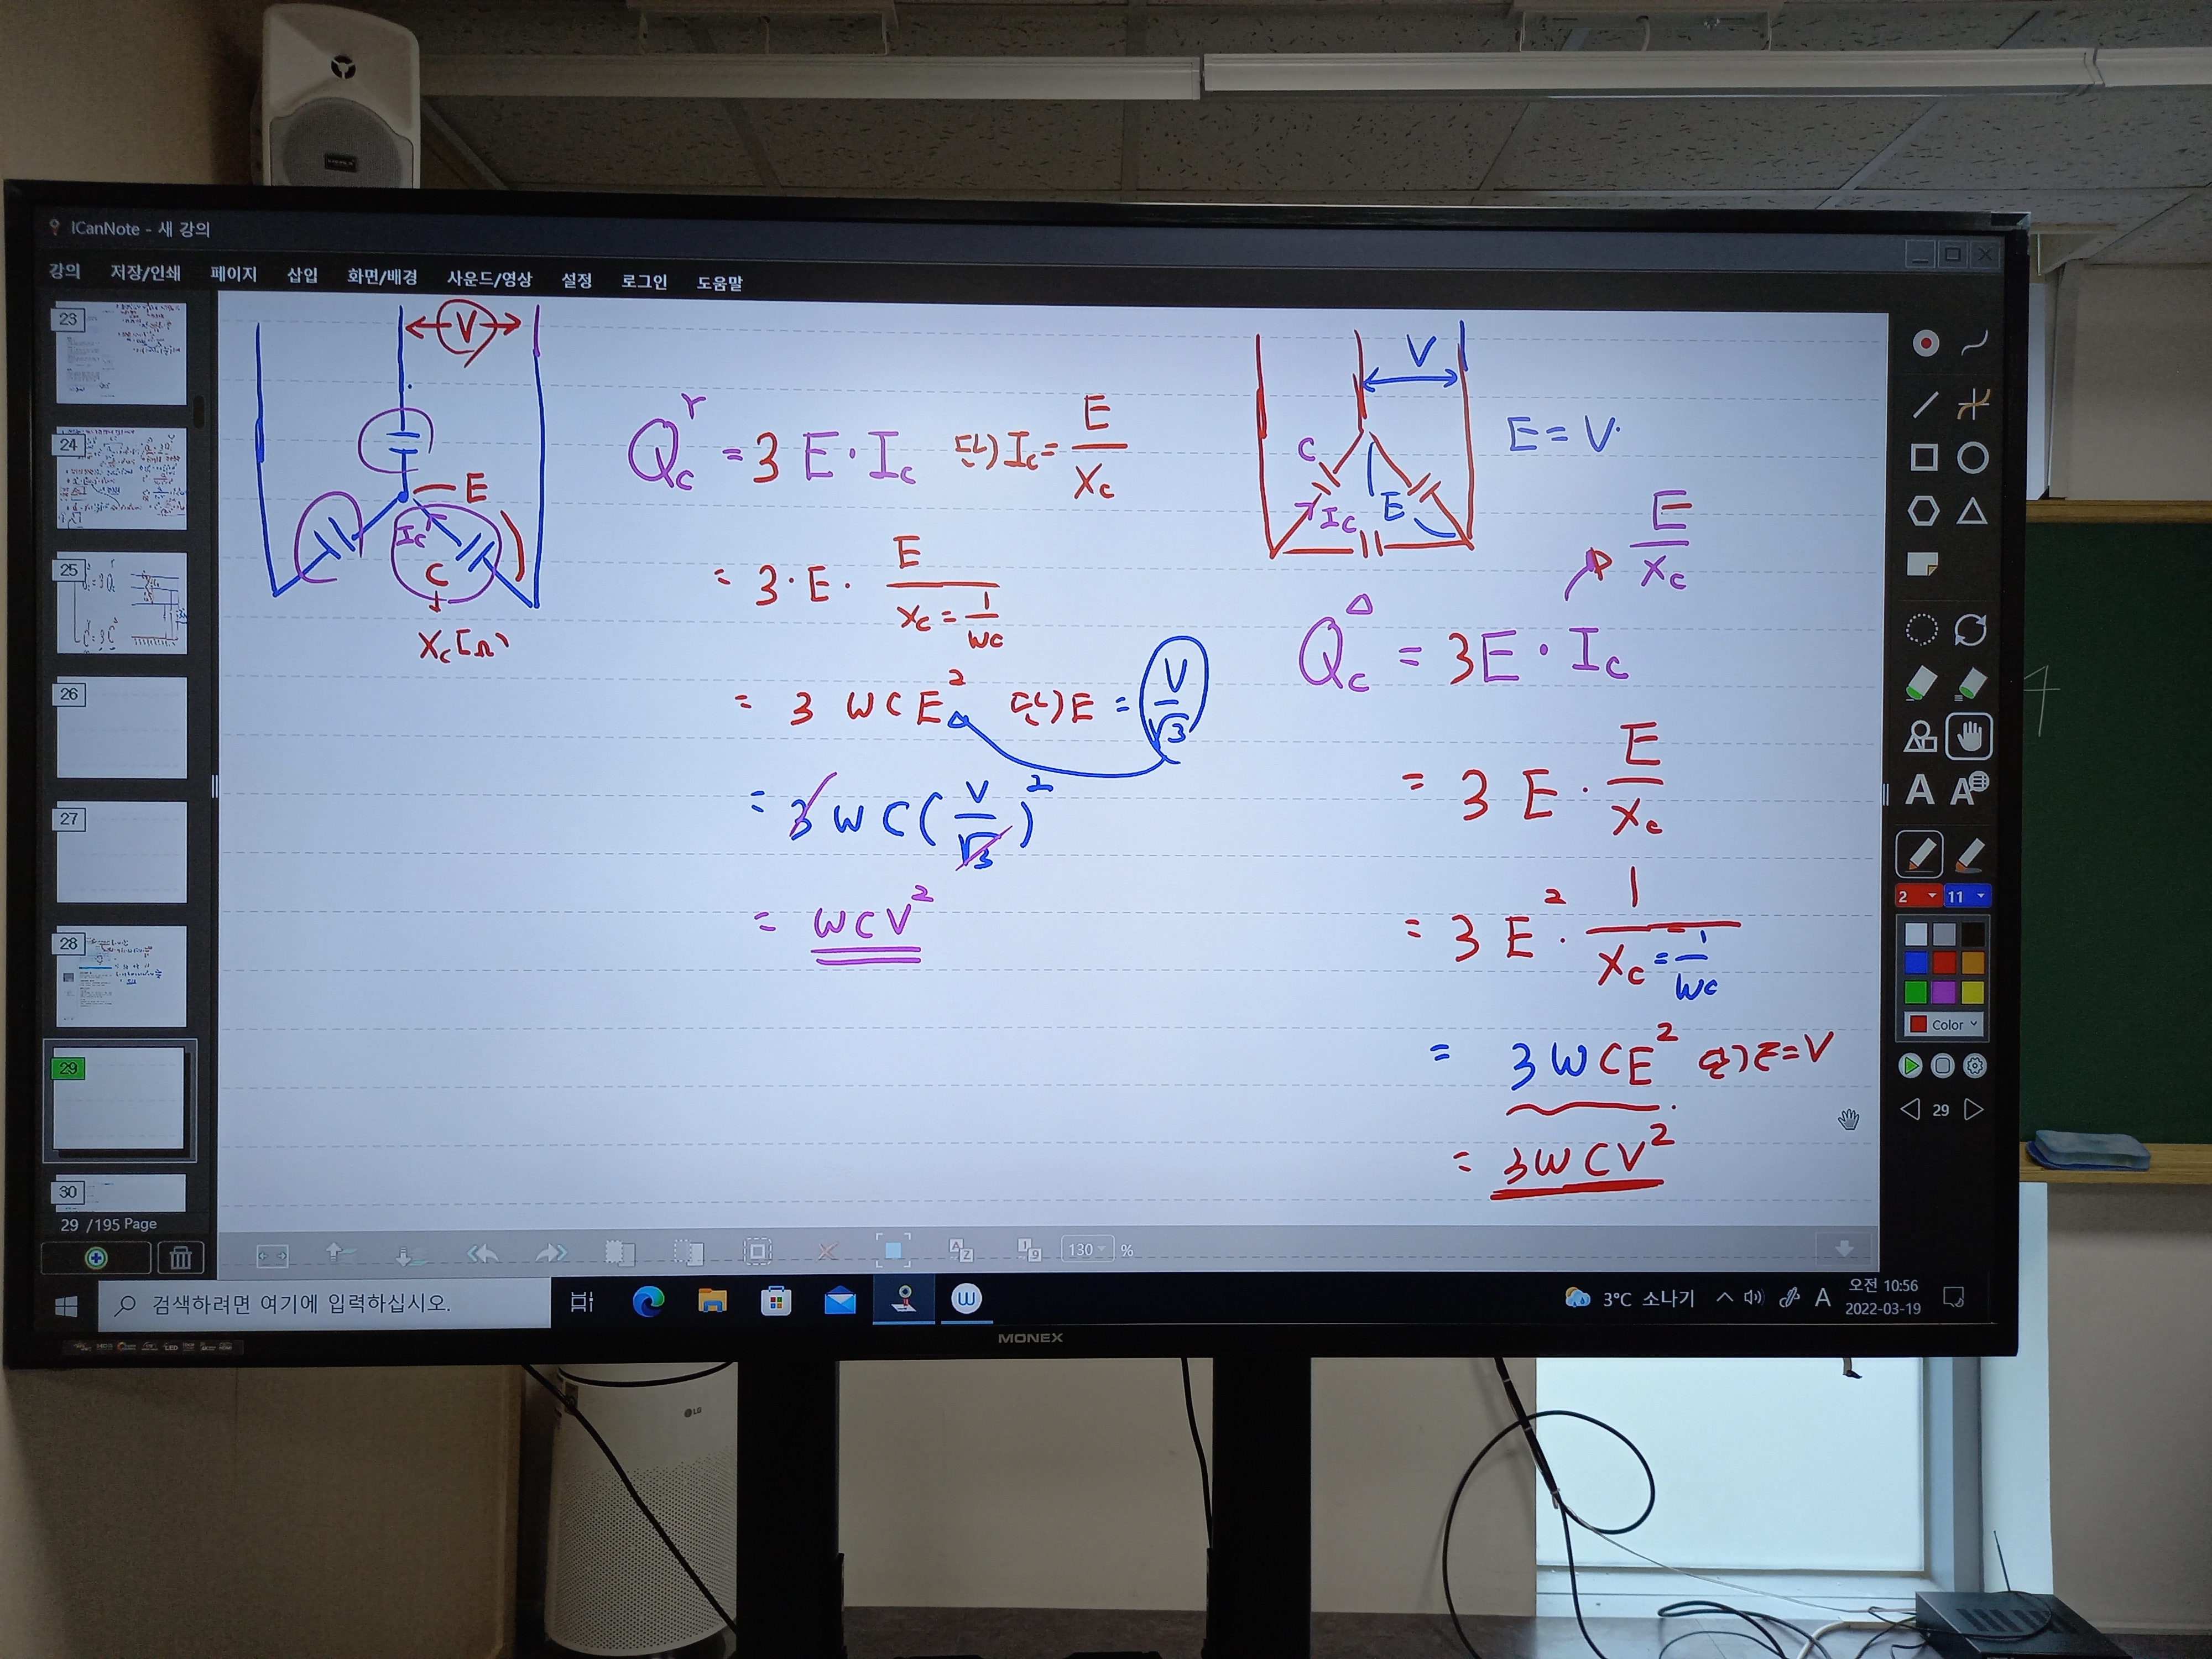 ICanNote - 새 강의
강의 저장/인쇄 페이지 삽입 화면/배경 사운드/영상 설정 로그인 도움말
23
24
25
26
27
28
29
30
29 /195 Page
V
E
Ic
C
Xc[Ω]
Qc^Y = 3 E · Ic 단) Ic = E/Xc
= 3 · E · E/(Xc = 1/wc)
= 3 w C E² 단) E = V/√3
= 3 w C (V/√3)²
= wCV²
V
E = V
C
Ic
E
E/Xc
Qc^Δ = 3E · Ic
= 3 E · E/Xc
= 3 E² · 1/(Xc = 1/wc)
= 3 w C E² 단) E = V
= 3 w C V²
2 11
Color
29
130 %
검색하려면 여기에 입력하십시오.
W
3°C 소나기
A
오전 10:56
2022-03-19
MONEX
LG